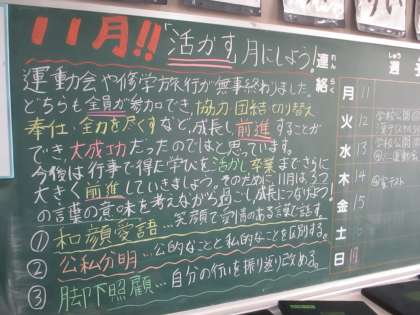 11月!!「活かす」月にしよう!
運動会や修学旅行が無事終わりました。
どちらも全員が参加でき、協力・団結・切り替え
奉仕・全力を尽くすなど、成長し前進することが
でき、大成功だったのではと思っています。
今後は行事で得た学びを活かし卒業までさらに
大きく前進していきましょう。そのために11月は3つ
の言葉の意味を考えながら過ごし成長につなげよう!
①和顔愛語…笑顔で愛情のある言葉で話す。
②公私分明…公的なことと私的なことを区別する。
③脚下照顧…自分の行いを振り返り改める。
連絡
れん
らく
しゅう
週
月 11
火 12 学校公開
水 13 学校公開
木 14
金 15
土
日